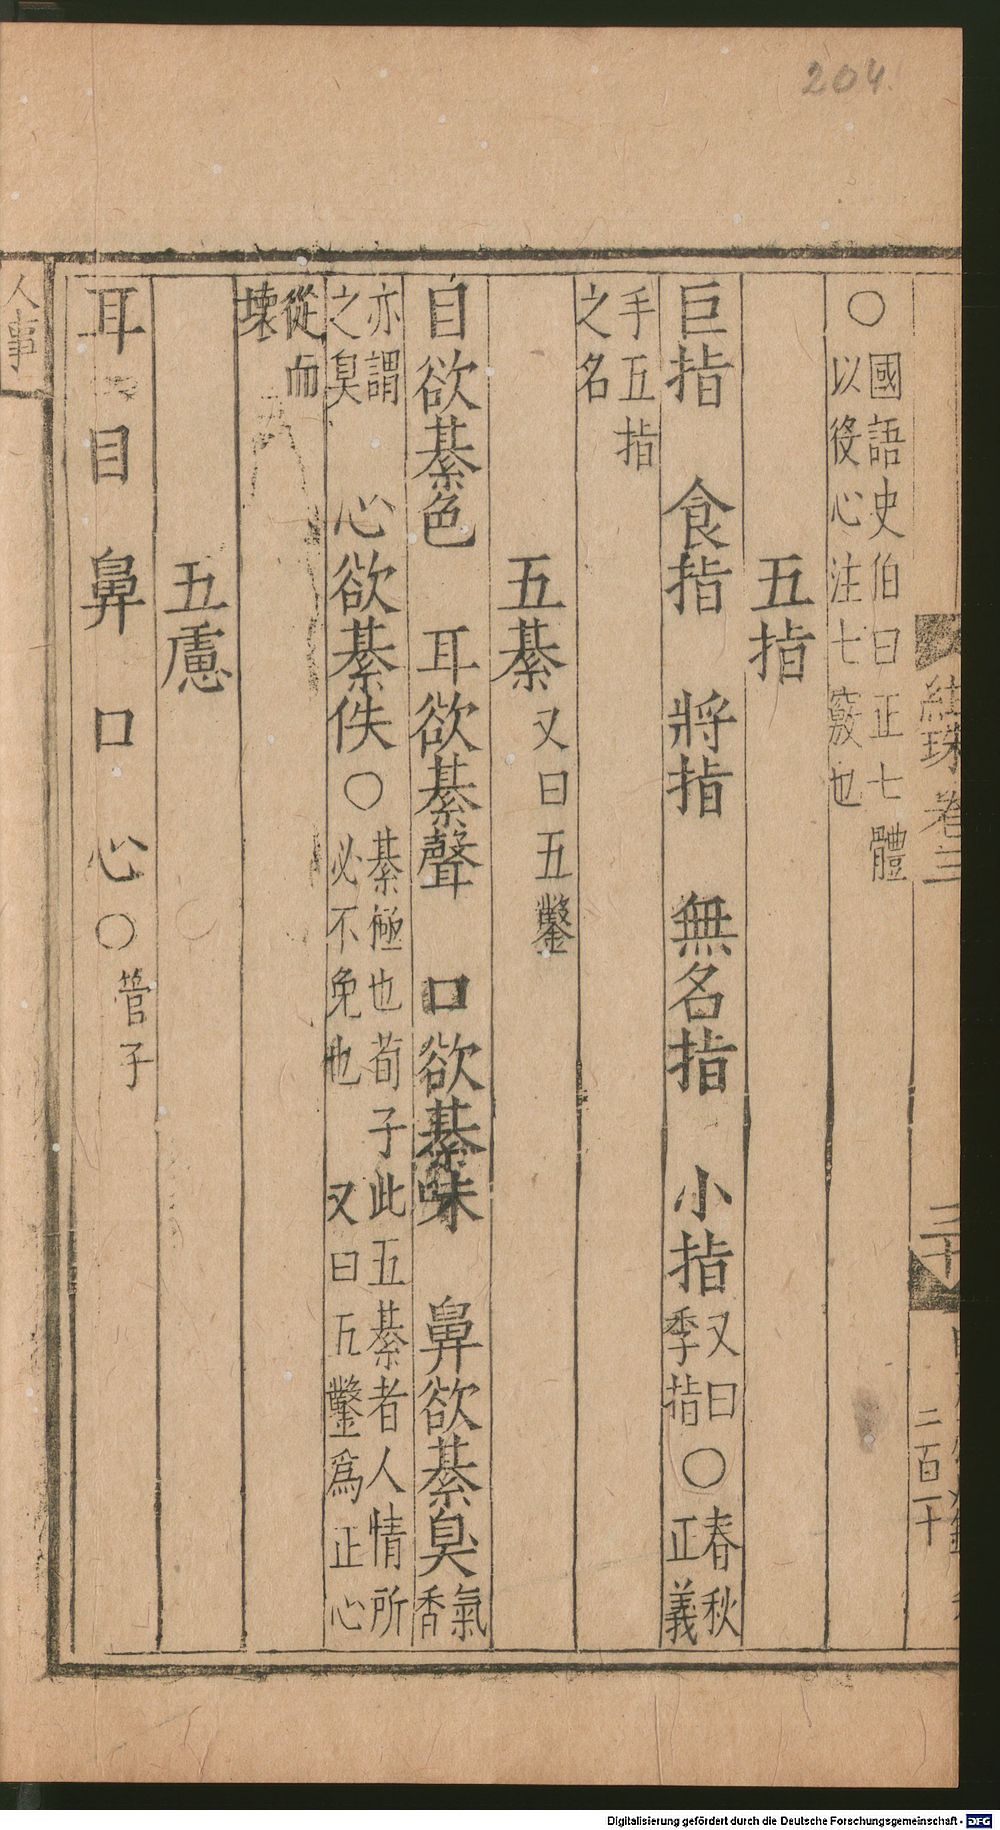 204.
紺珠卷三
三十
二百一十
○國語史伯曰正七體
以役心注七竅也
五指
巨指 食指 將指 無名指 小指又曰季指○春秋正義
手五指
之名
五綦又曰五鑿
目欲綦色 耳欲綦聲 口欲綦味 鼻欲綦臭氣香
亦謂之臭 心欲綦佚○綦極也荀子此五綦者人情所
必不免也 又曰五鑿爲正心
從而
壞
五慮
耳 目 鼻 口 心○管子
人事
Digitalisierung gefördert durch die Deutsche Forschungsgemeinschaft - DFG